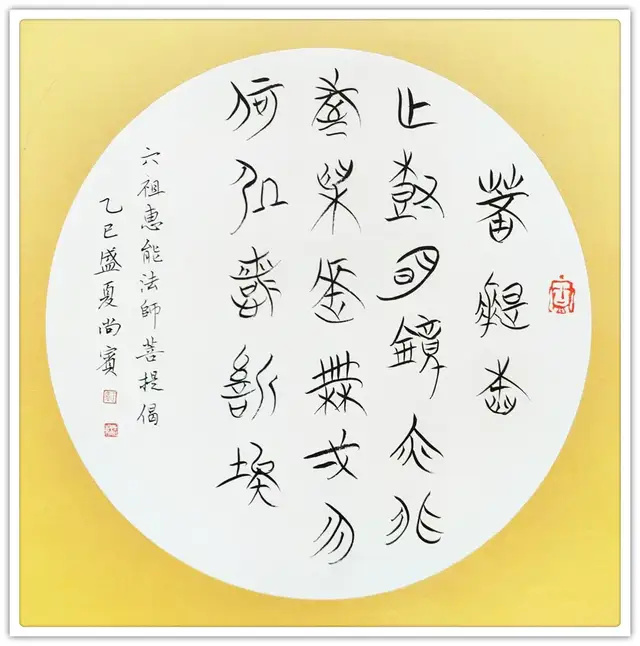 菩提本
亡樹明鏡亦非
臺本來無弌勿
何処惹塵埃
六祖惠能法師菩提偈
乙巳盛夏尚賓